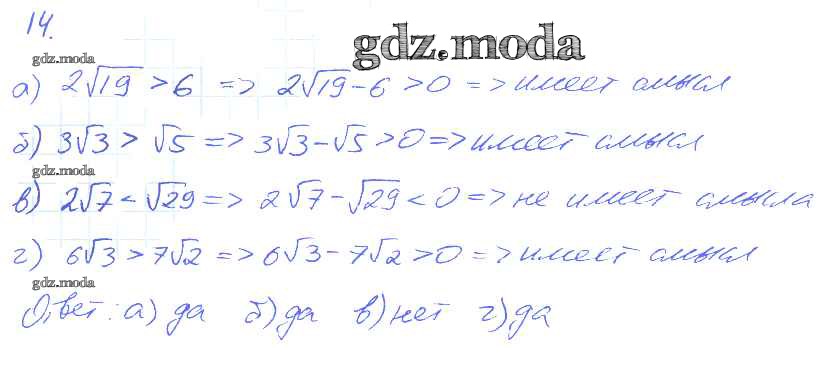 14.
gdz.moda
gdz.moda
а) 2√19 > 6 => 2√19 - 6 > 0 => имеет смысл
б) 3√3 > √5 => 3√3 - √5 > 0 => имеет смысл
gdz.moda
в) 2√7 < √29 => 2√7 - √29 < 0 => не имеет смысла
г) 6√3 > 7√2 => 6√3 - 7√2 > 0 => имеет смысл
gdz.moda
Ответ: а) да б) да в) нет г) да